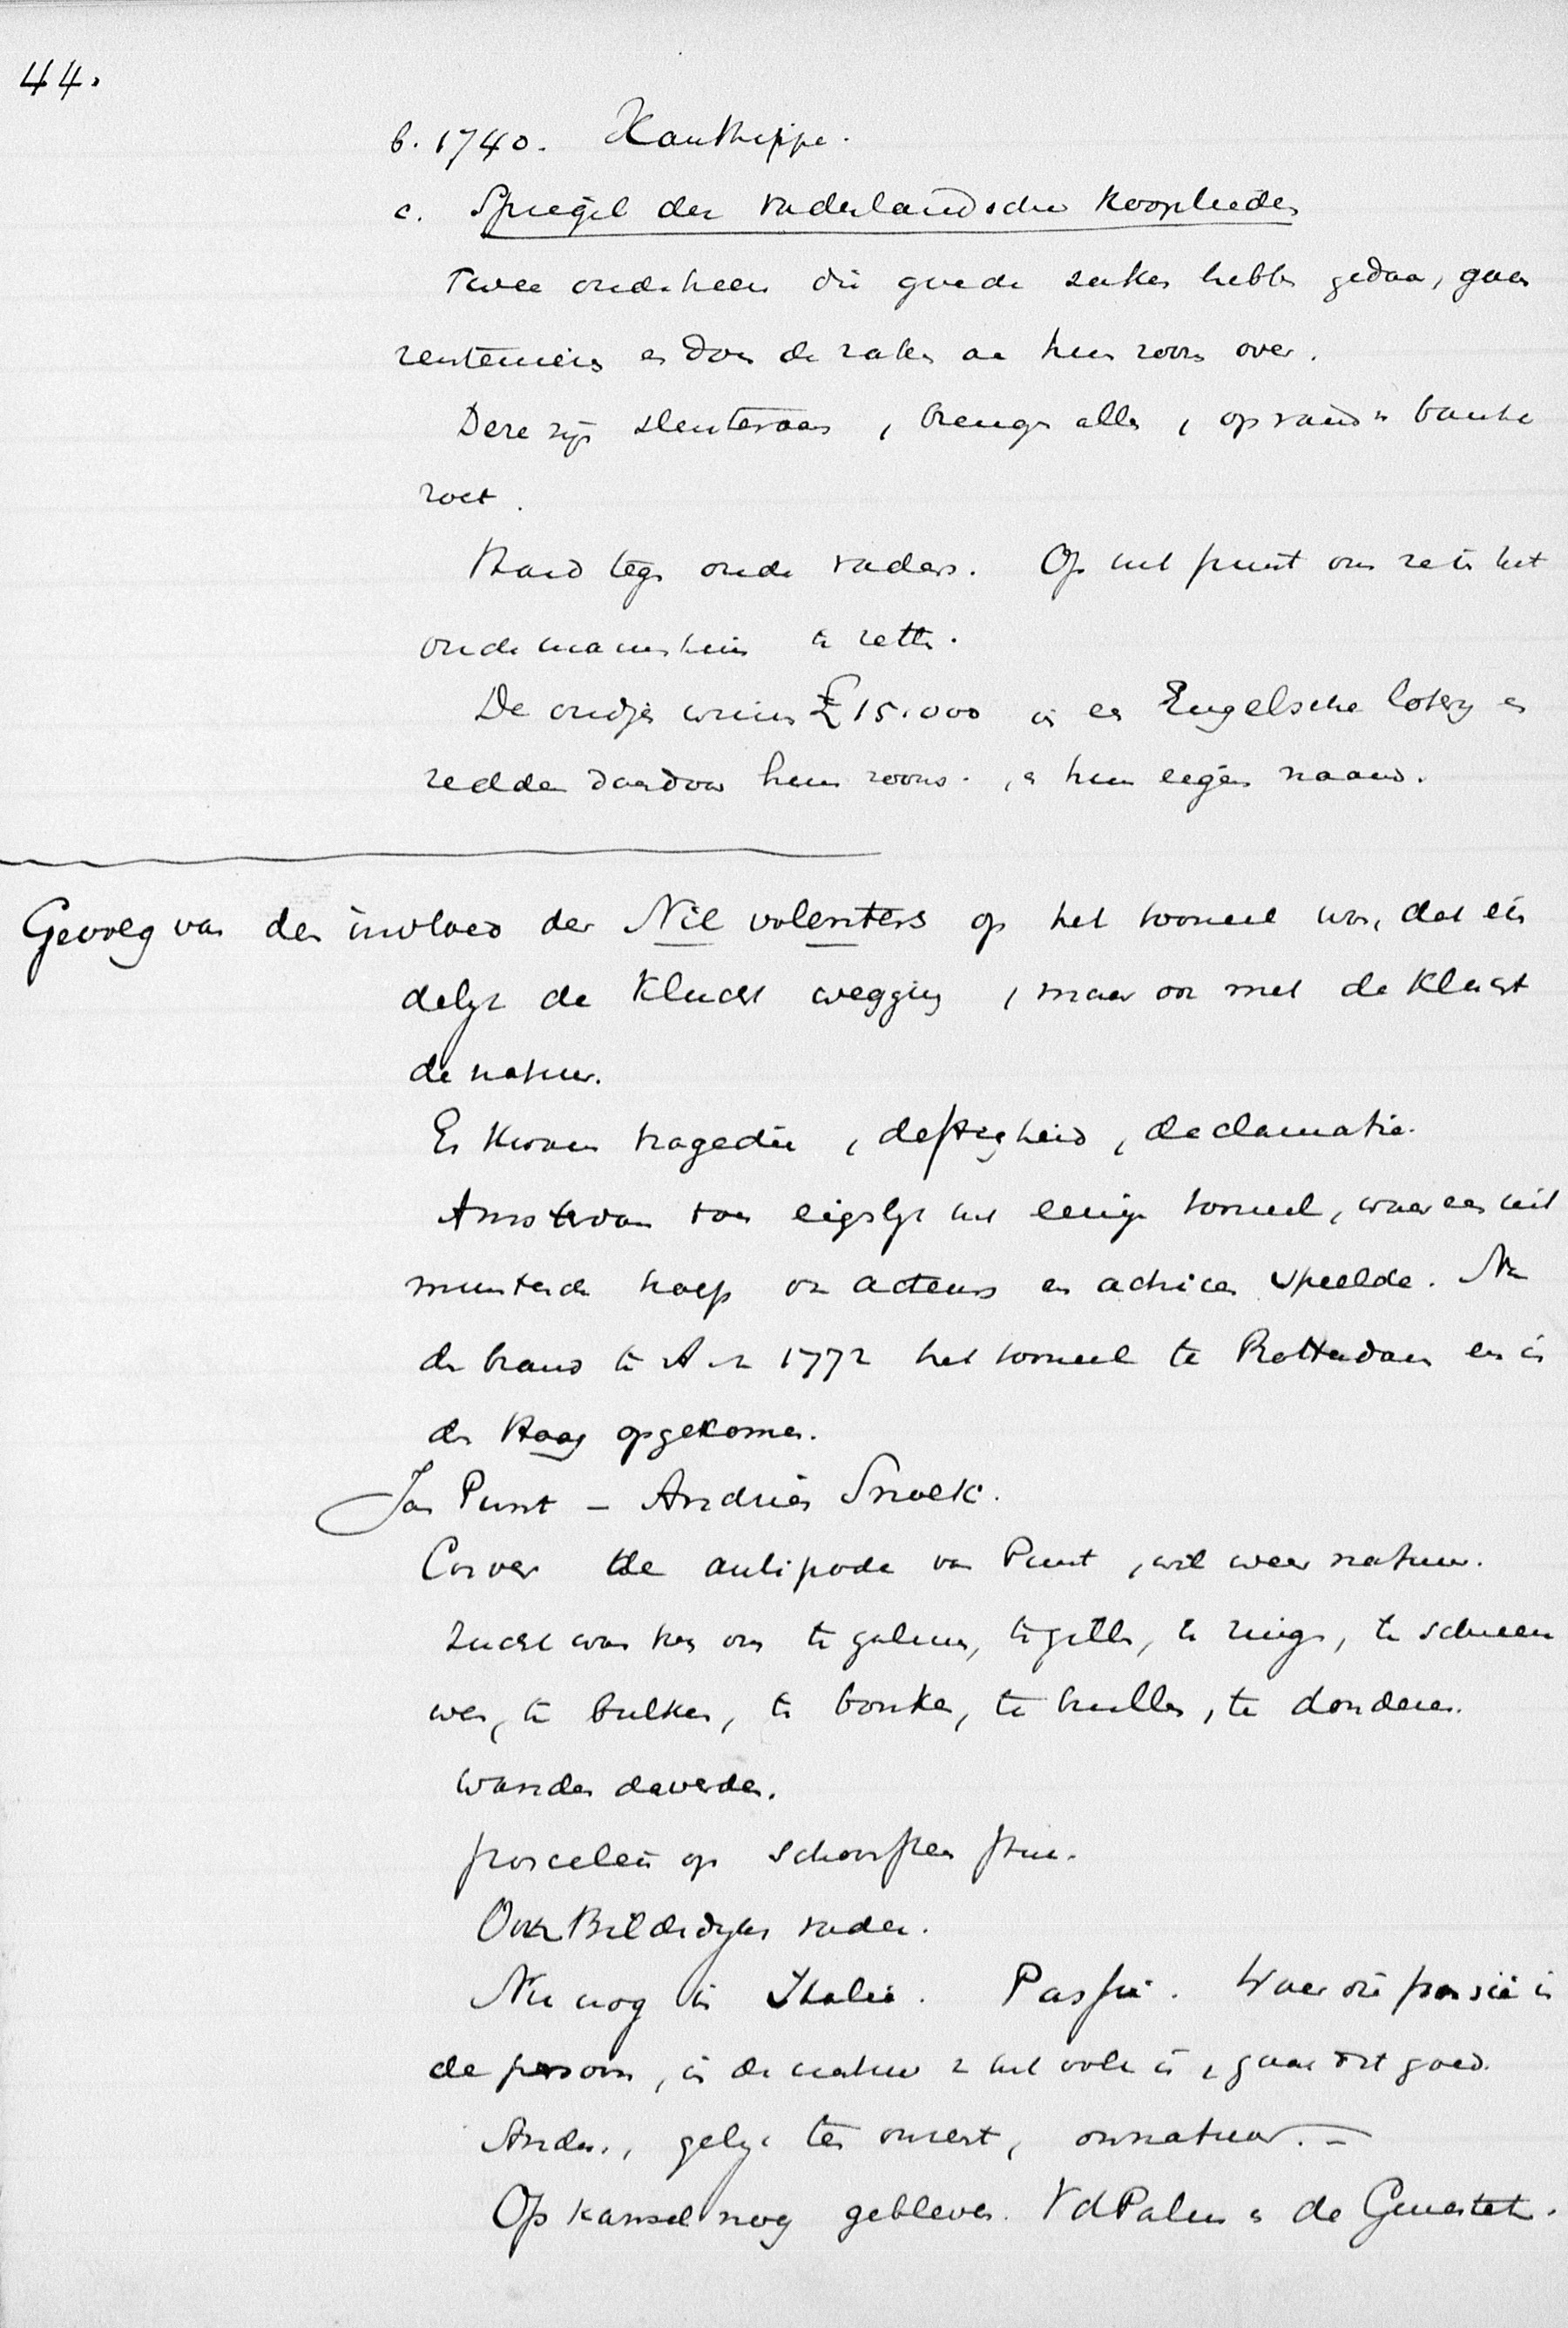 44.
b. 1740. Xanthippe.
c. Spiegel der vaderlandsche kooplieden
Twee oude heeren die goede zaken hebben gedaan, gaan
rentenieren en doen de zaken aan hun zoons over.
Deze zijn slenteraars, brengen alles, op rand v banke
roet.
Staan tegen oude vaders. Op het punt om ze in het
oudemannenhuis te zetten.
De oudjes winnen £15.000 in een Engelsche loterij en
redden daardoor hun zoons., en hun eigen naam.
Gevolg van den invloed der Nil volenters op het tooneel was, dat ein
delijk de Klucht wegging, maar ook met de Klucht
de natuur.
Er kwam tragedie, deftigheid, declamatie.
Amsterdam was eigenlijk het eenige tooneel, waar een uit
muntende troep van acteurs en actrices speelde. Na
de brand te A. in 1772 het tooneel te Rotterdam en in
den Haag opgekomen.
Jan Punt - Andries Snoek.
Corver de antipode van Punt, wil weer natuur.
Zucht was toen om te galmen, te gillen, te zingen, te schreeu
wen, te bulken, te bonken, te brullen, te donderen.
Wanden daverden.
porcelein op schoorsteen
Ook Bilderdijks vader.
Nu nog in Italie. Passie. Waar die passie in
de persoon, in de natuur v het volk is, gaat dit goed.
Anders, gelijk ten onzent, onnatuur. -
Op kansel nog gebleven. Vd Palm en de Genestet.